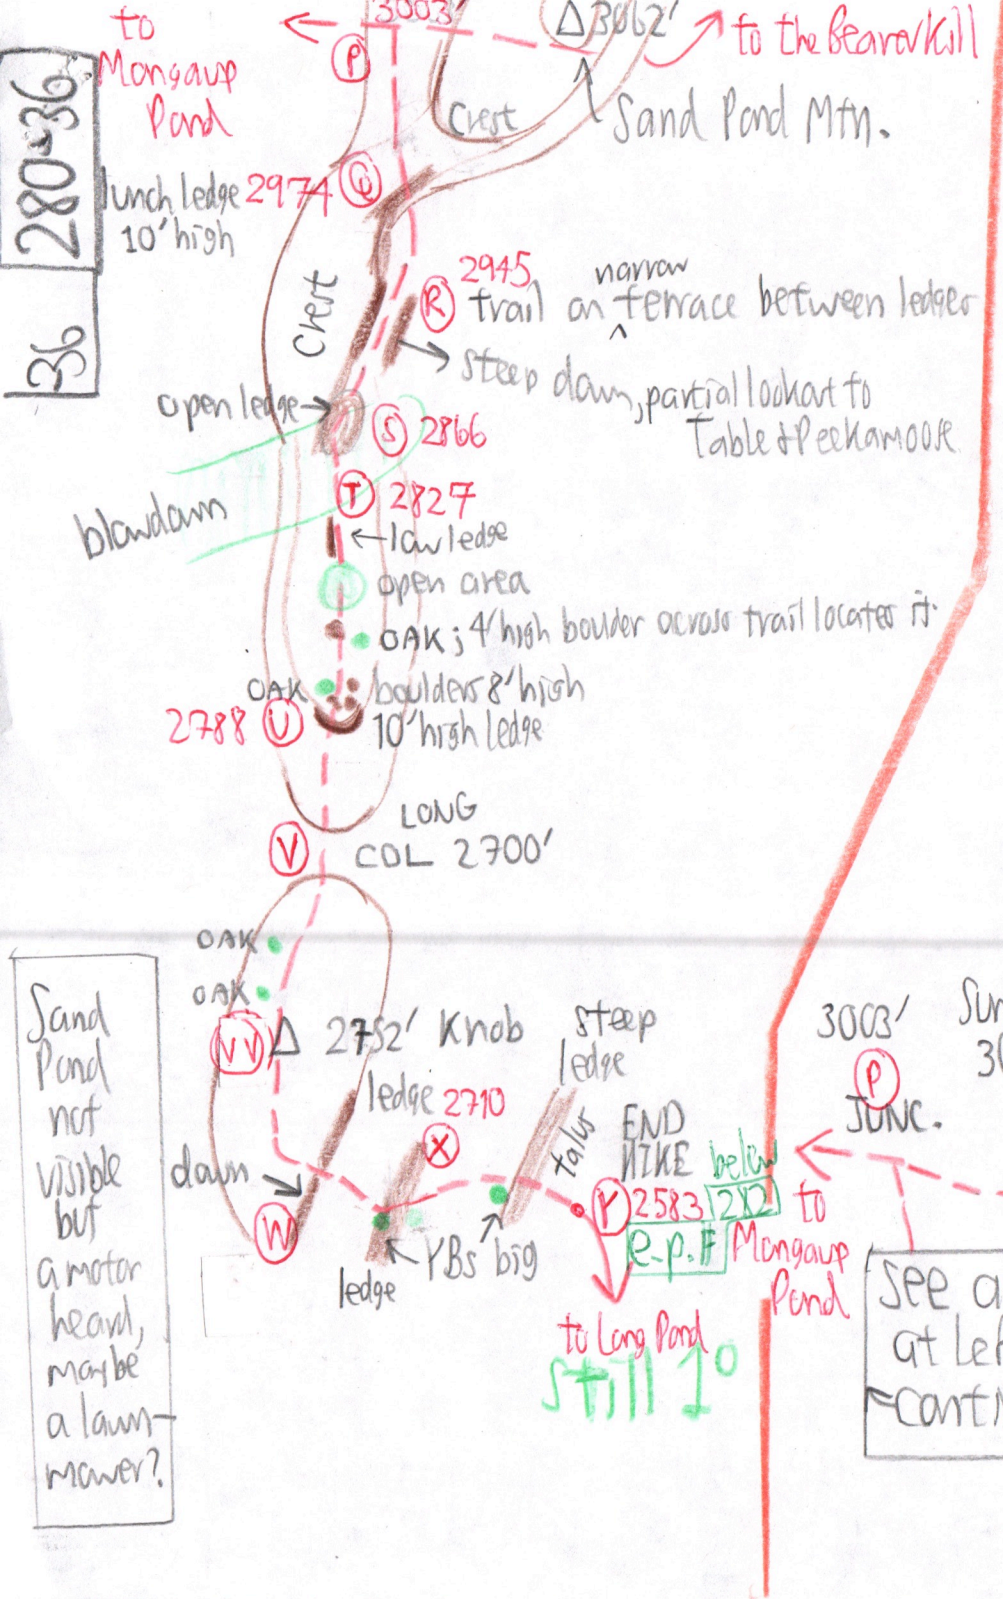 to
Mongaup
Pond
3003'
P
△ 3062'
to the Beaverkill
Crest
Sand Pond Mtn.
280-36
36
lunch ledge 2974 Q
10' high
Crest
2945
R trail on ^ terrace between ledges
narrow
steep down, partial lookout to
Table & Peekamoose
open ledge
S 2866
blowdown
T 2827
low ledge
open area
OAK; 4' high boulder across trail locates it.
OAK
boulders 8' high
2788 U
10' high ledge
LONG
V
COL 2700'
OAK
OAK
VV △ 2752' Knob
ledge 2710
X
steep
ledge
talus
down
W
ledge
YBs big
END
HIKE
below
Y 2583 212
e.p. F
to
Mongaup
Pond
to Long Pond
still 1°
3003'
P
JUNC.
See a
at lef
conti
Sand
Pond
not
visible
but
a motor
heard,
maybe
a lawn-
mower?